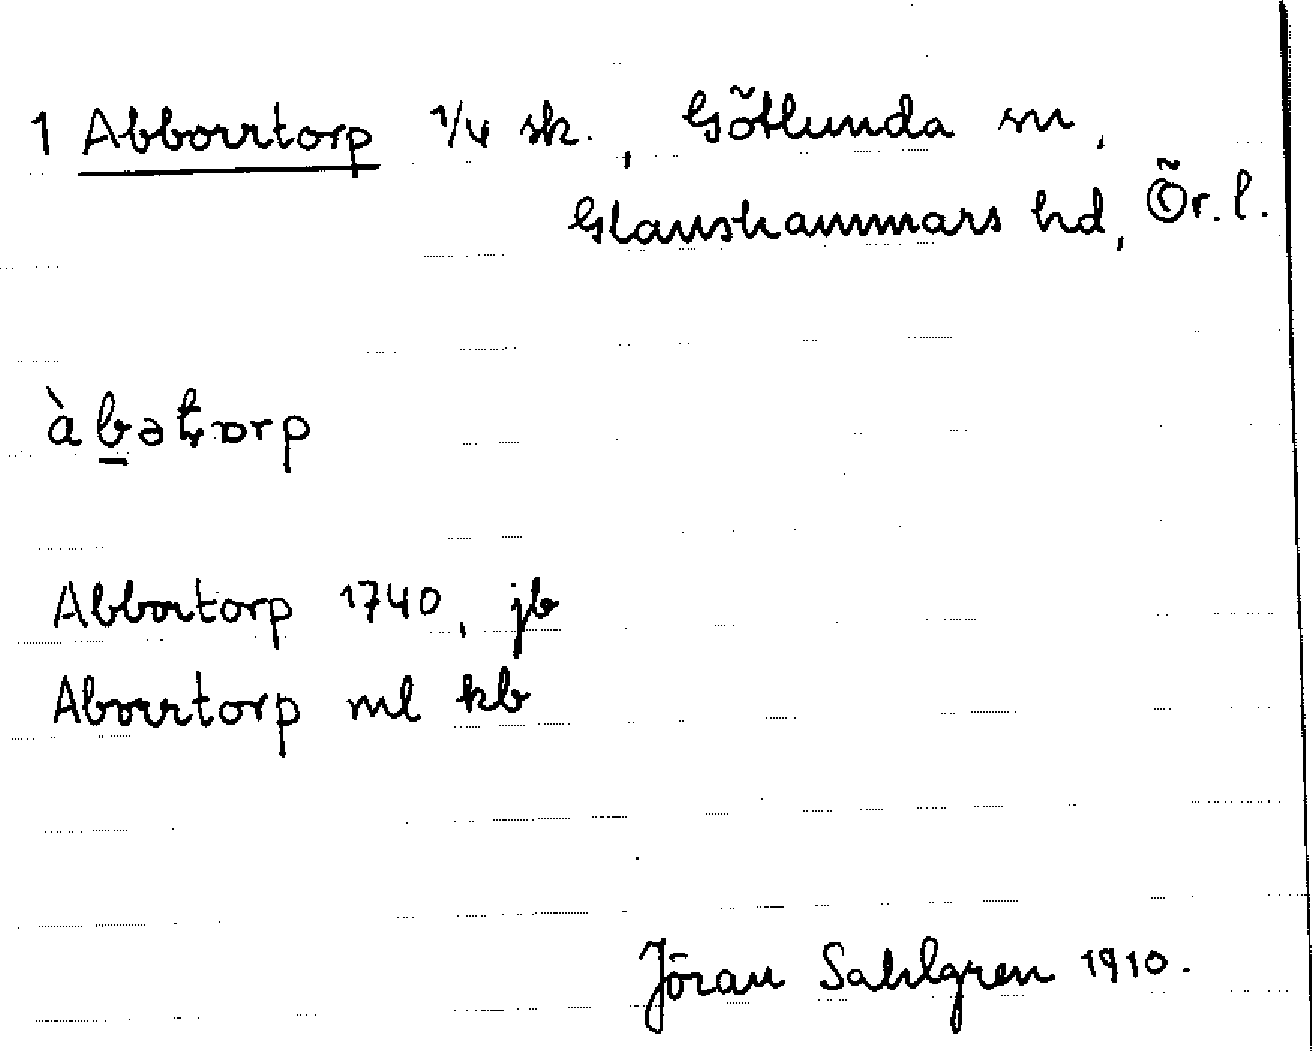 1 Abborrtorp 1/4 sk., Götlunda sn,
Glanshammars hd, Ör. l.
àbət̨ɒrp
Abbortorp 1740, jb
Aborrtorp ml kb
Jöran Sahlgren 1910.